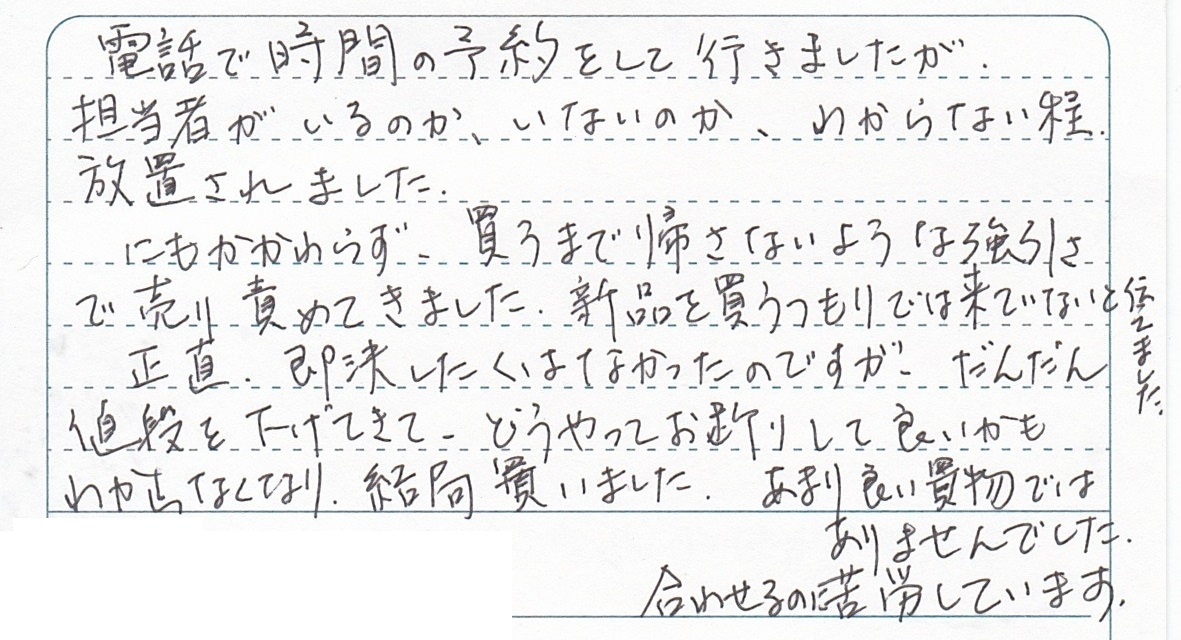 電話で時間の予約をして行きましたが.
担当者がいるのか、いないのか、わからない程.
放置されました.
にもかかわらず、買うまで帰さないような強引さ
で売り責めてきました.新品を買うつもりでは来ていないと伝えました.
正直.即決したくはなかったのですが、だんだん
値段を下げてきて、どうやってお断りして良いかも
わからなくなり.結局買いました.あまり良い買物では
ありませんでした.
合わせるのに苦労しています.